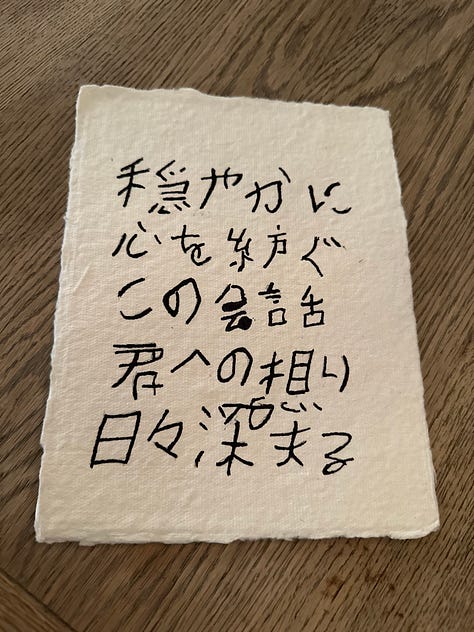 穏やかに
心を紡ぐ
この会話
君への想い
日々深まる